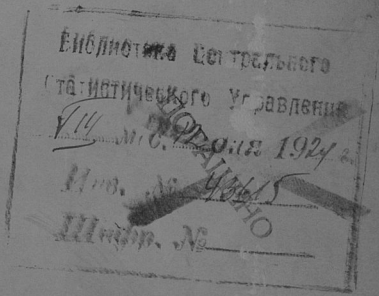 Библиотека Центрального
Статистического Управления
VIII м-ц. дня 1924 г.
Инв. № 43615
Шифр. №
ПОГАШЕНО